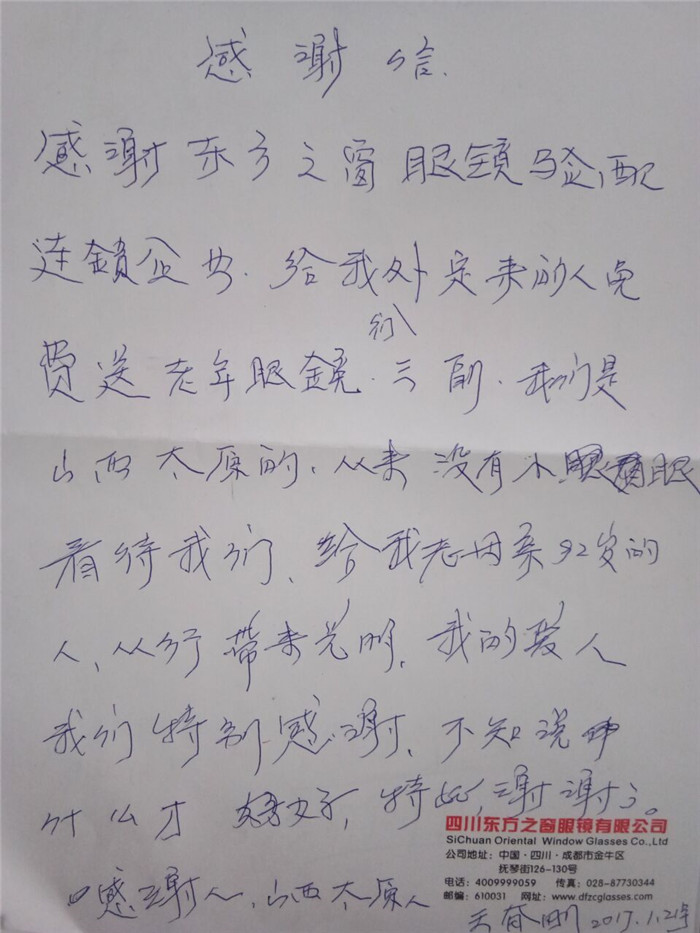 感谢信
感谢东方之窗眼鏡验配
连鎖企业.给我外定来的人免
们
费送老年眼鏡.三副.我们是
山西太原的.从来没有小眼
看待我们、给我老母亲92岁的
人、从行带来光明.我的爱人
我们特别感谢.不知说
什么才好,特此,谢谢了。
四川东方之窗眼镜有限公司
SiChuan Oriental Window Glasses Co.,Ltd
公司地址:中国·四川·成都市金牛区
抚琴街126-130号
电话:4009999059 传真:028-87730344
邮编:610031 网址:www.dfzcglasses.com
感谢人、山西太原人
2017.1.21号